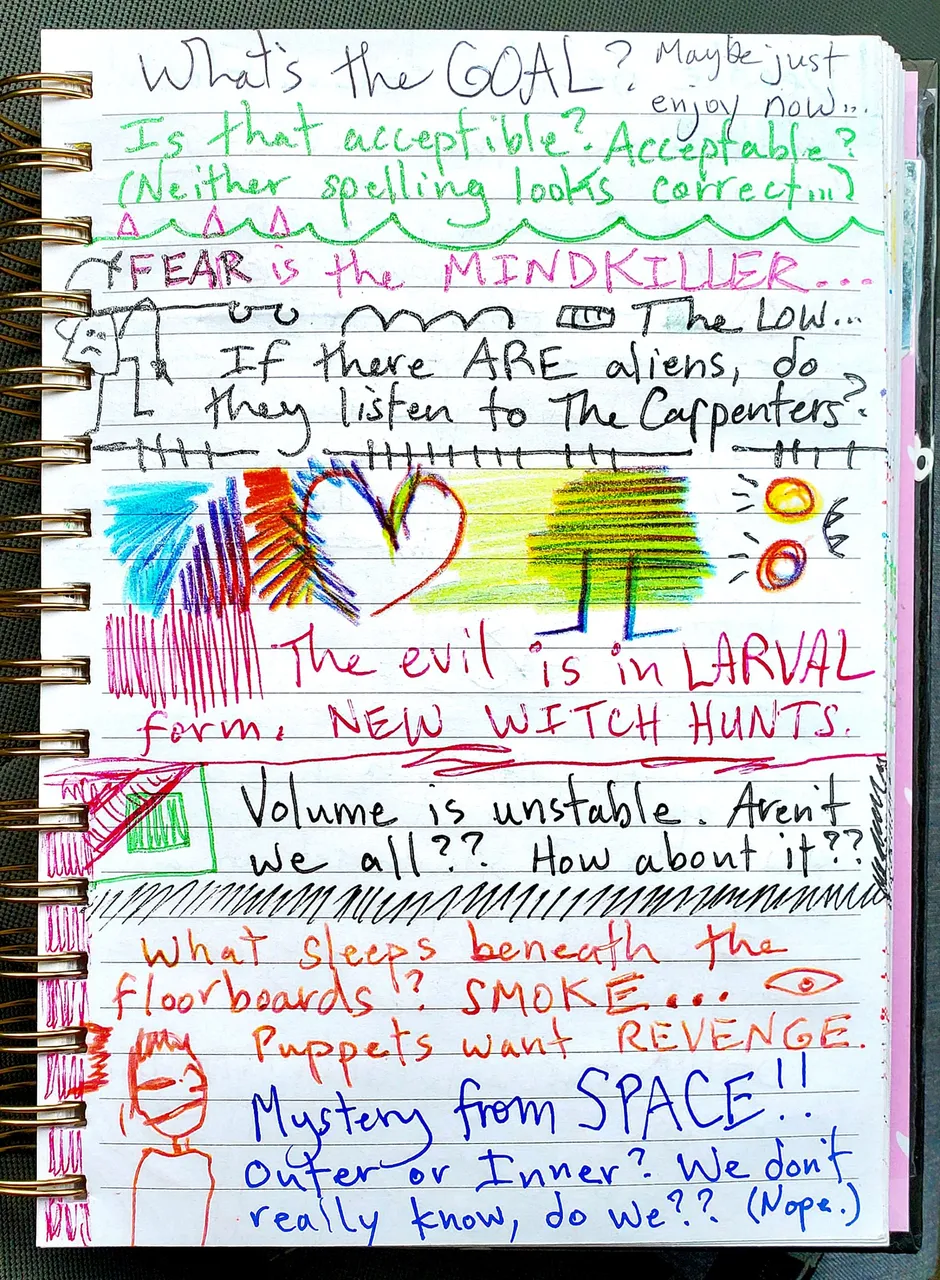 What's the GOAL? Maybe just
enjoy now...
Is that acceptible? Acceptable?
(Neither spelling looks correct...)
FEAR is the MINDKILLER...
The Low...
If there ARE aliens, do
they listen to The Carpenters?
The evil is in LARVAL
form. NEW WITCH HUNTS.
Volume is unstable. Aren't
we all?? How about it??
What sleeps beneath the
floorboards? SMOKE...
Puppets want REVENGE.
Mystery from SPACE!!
Outer or Inner? We don't
really know, do we?? (Nope.)